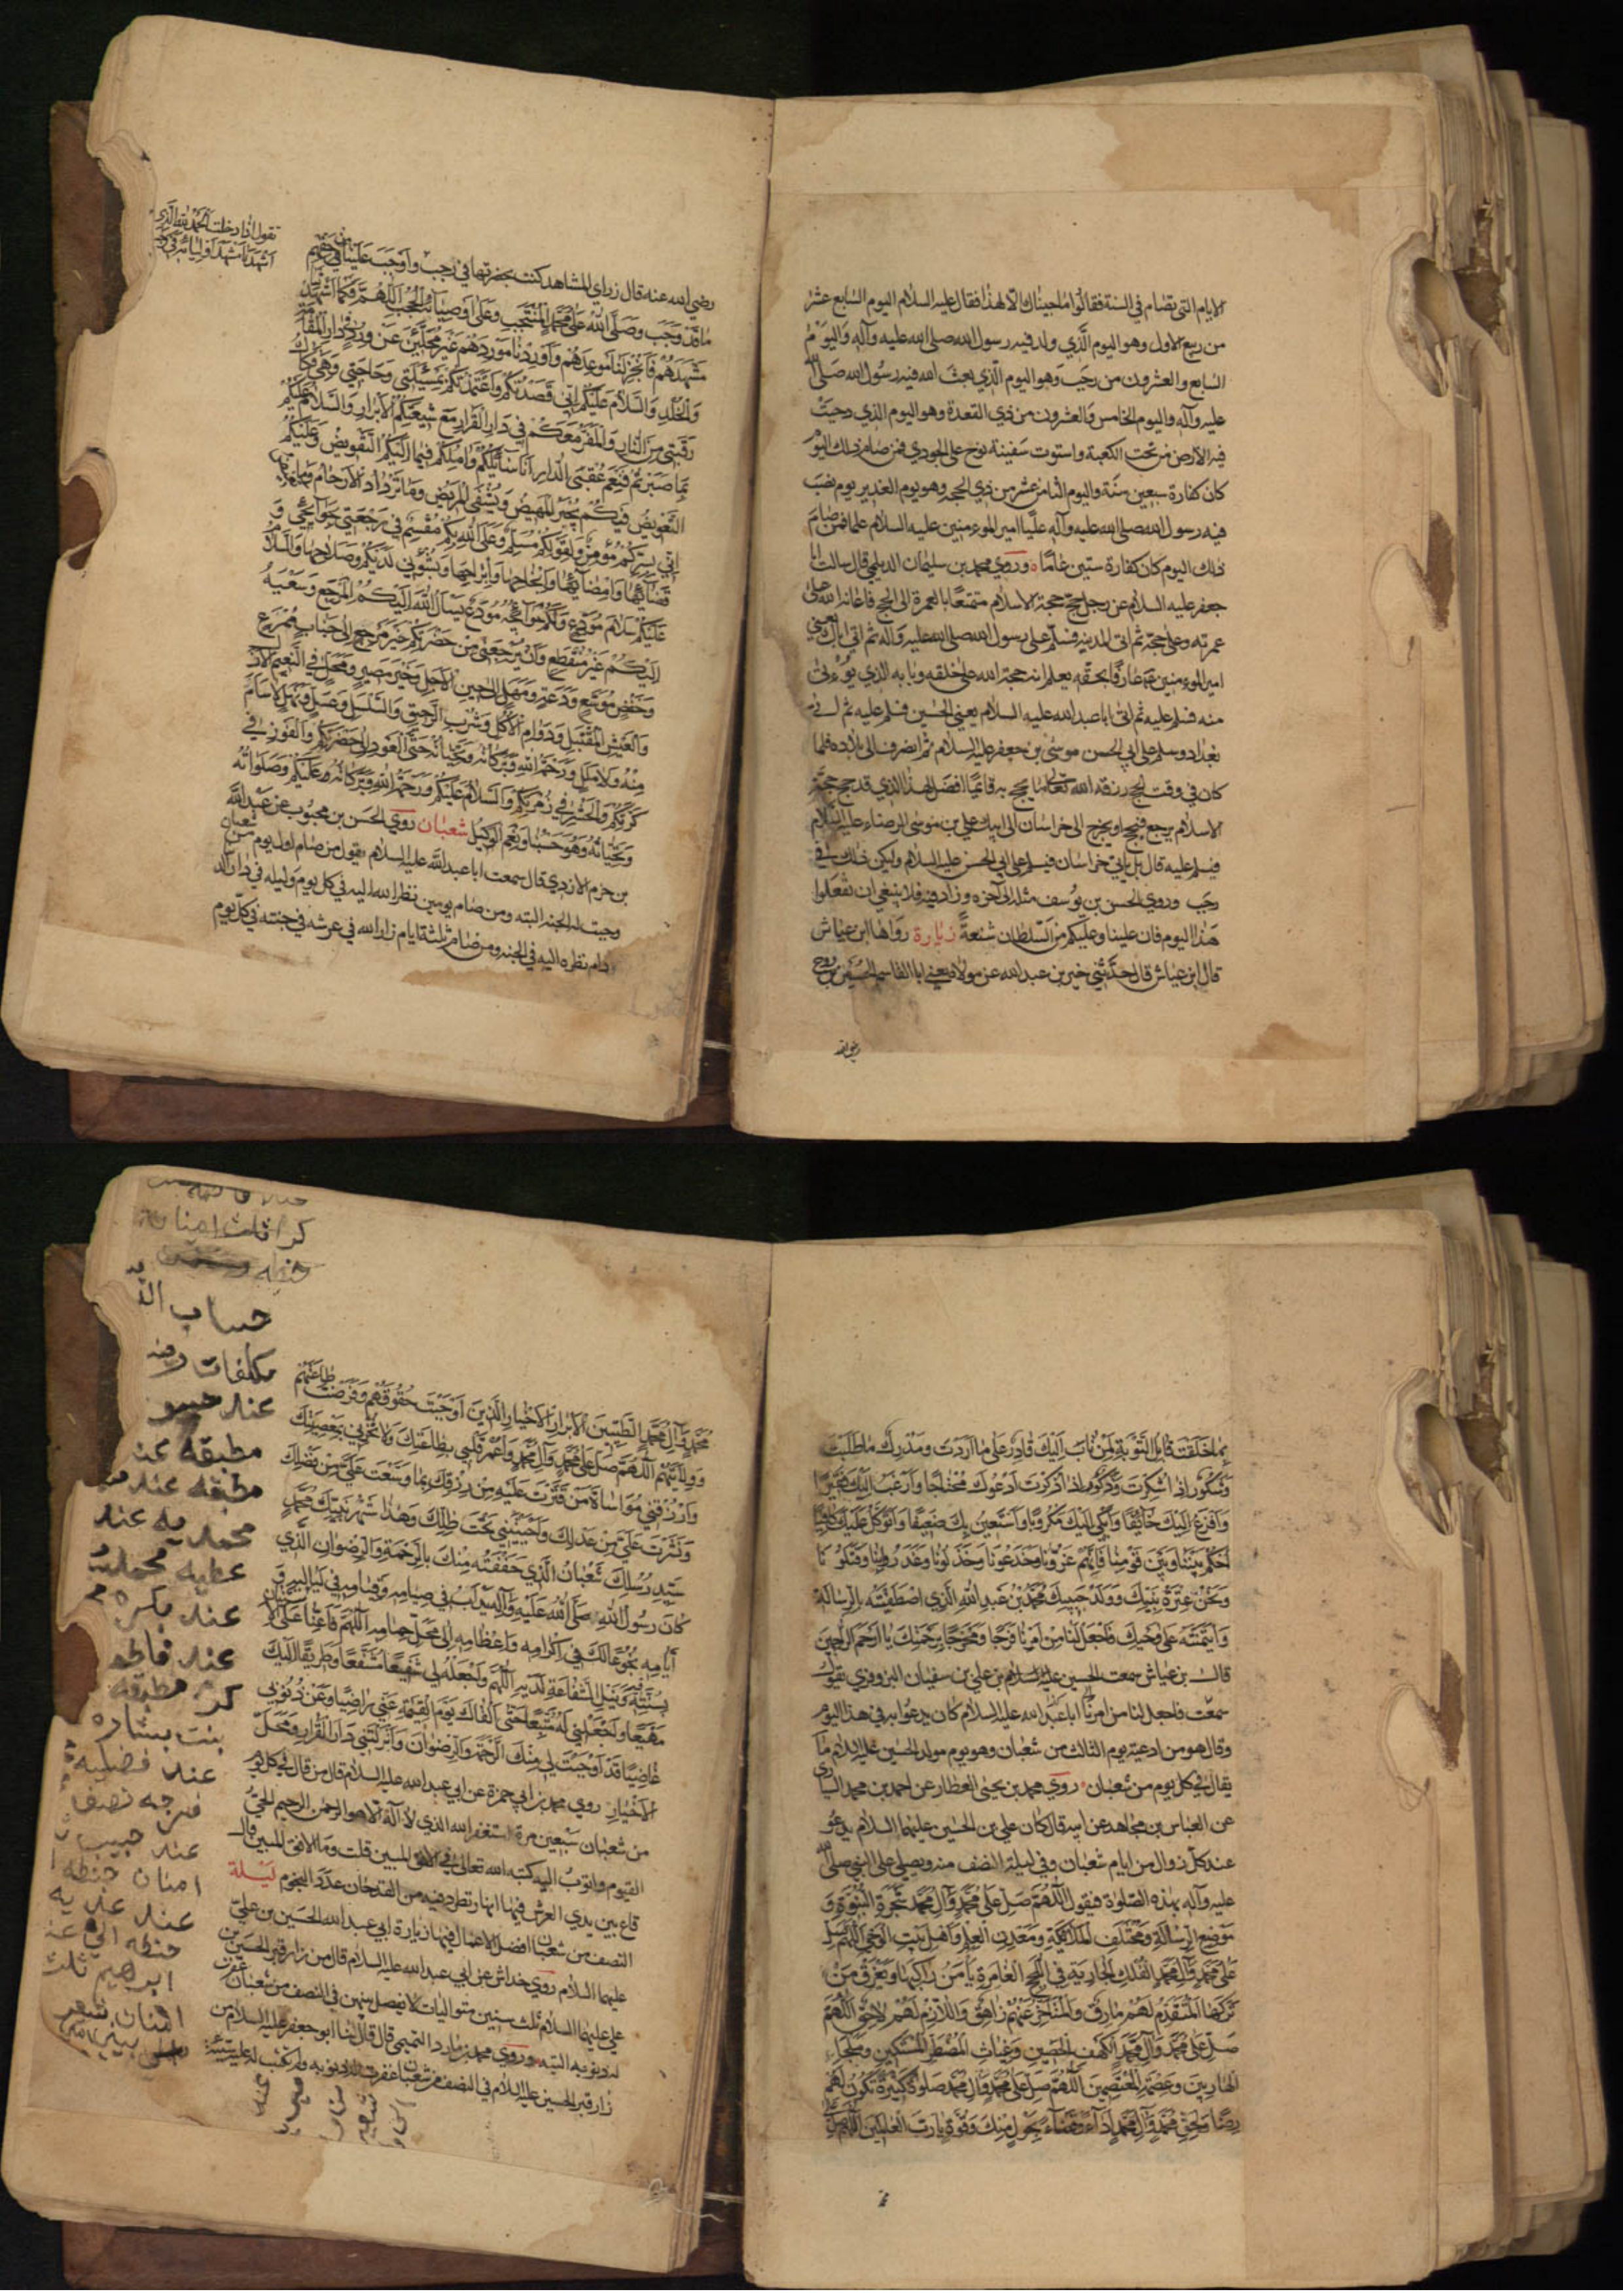 الايام التي تصام في السنة فقالوا ما جيناك الا لهذا فقال عليه السلام اليوم السابع عشر
من ربيع الاول وهو اليوم الذي ولد فيه رسول الله صلى الله عليه وآله واليوم
السابع والعشرون من رجب وهو اليوم الذي بعث الله فيه رسول الله صلى الله
عليه وآله واليوم الخامس والعشرون من ذي القعدة وهو اليوم الذي دحيت
فيه الارض من تحت الكعبة واستوت سفينة نوح على الجودي فمن صام ذلك اليوم
كان كفارة سبعين سنة واليوم الثامن عشر من ذي الحجه وهو يوم الغدير يوم نصب
فيه رسول الله صلى الله عليه وآله عليا امير المومنين عليه السلام علما فمن صام
ذلك اليوم كان كفارة ستين عاما وروي محمد بن سليمان الديلمي قال سالت ابا
جعفر عليه السلام عن رجل حج حجة الاسلام متمتعا بالعمرة الى الحج فاعانه الله على
عمرته وعلى حجه ثم اتى المدينه فسلم على رسول الله صلى الله عليه وآله ثم اتى اباك يعني
امير المومنين ع عارفا بحقه يعلم انه حجة الله على خلقه وبابه الذي يؤتى
منه فسلم عليه ثم اتى ابا عبد الله عليه السلام يعني الحسين فسلم عليه ثم اتى
بغداد وسلم على ابي الحسن موسى بن جعفر عليه السلام ثم انصرف الى بلاده فلما
كان في وقت الحج رزقه الله تعالى ما يحج به فايما افضل لهذا الذي قد حج حجة
الاسلام يرجع فيحج او يخرج الى خراسان الى ابيك علي بن موسى الرضا عليه السلام
فيسلم عليه قال بل ياتي خراسان فيسلم على ابي الحسن عليه السلام وليكن ذلك في
رجب وروي الحسن بن يوسف مثله الى آخره وزاد فيه فلا ينبغي ان تفعلوا
هذا اليوم فان علينا وعليكم من السلطان شنعة زيارة رواها ابن عياش
قال ابن عياش قال حدثني خير بن عبد الله عن مولاه يعني ابا القاسم الحسين بن روح
رضي الله
تقول اذا دخلت الحمد لله الذي
اشهدنا مشهد اوليائه في
رضي الله عنه قال زر اي المشاهد كنت بحضرتها في رجب واوجب علينا من حقهم
ما قد وجب وصلى الله على محمد المنتجب وعلى اوصيائه الحجب اللهم فكما اشهدتنا
مشهدهم فانجز لنا موعدهم واوردنا موردهم غير محلئين عن ورد في دار المقامة
والخلد والسلام عليكم اني قصدتكم واعتمدتكم بمسئلتي وحاجتي وهي فكاك
رقبتي من النار والمقر معكم في دار القرار مع شيعتكم الابرار والسلام عليكم
بما صبرتم فنعم عقبى الدار انا سائلكم واملكم فيما اليكم التفويض وعليكم
التعويض فبكم يجبر المهيض ويشفى المريض وما تزداد الارحام وما تغيض
اني بسركم مؤمن ولقولكم مسلم وعلى الله بكم مقسم في رجعتي بحوائجي و
قضائها وامضائها وانجاحها وابراحها وبشؤوني لديكم وصلاحها والسلام
عليكم سلام مودع ولكم حوائجه مودع يسال الله اليكم المرجع وسعيه
اليكم غير منقطع وان يرجعني من حضرتكم خير مرجع الى جناب ممرع
وخفض موسع ودعة ومهل الى حين الاجل وخير مصير ومحل في النعيم الازل
والعيش المقتبل ودوام الاكل وشرب الرحيق والسلسل وعسل ونهل لا سام
منه ولا ملل ورحمة الله وبركاته وتحياته حتى العود الى حضرتكم والفوز في
كرتكم والحشر في زمرتكم والسلام عليكم ورحمة الله وبركاته عليكم وصلواته
وتحياته وهو حسبنا ونعم الوكيل شعبان روي الحسن بن محبوب عن عبد الله
بن حزم الازدي قال سمعت ابا عبد الله عليه السلام يقول من صام اول يوم من شعبان
وجبت له الجنة البته ومن صام يومين نظر الله اليه في كل يوم وليله في دار الد
دام نظره اليه في الجنة ومن صام ثلثة ايام زار الله في عرشه في جنته في كل يوم
بما خلقت قابل التوبة لمن تاب اليك قادر على ما اردت ومدرك ما طلبت
وشكور اذا شكرت وذكور اذا ذكرت ادعوك محتاجا وارغب اليك فقيرا
وافزع اليك خائفا وابكي اليك مكروبا واستعين بك ضعيفا واتوكل عليك كافيا
احكم بيننا وبين قومنا فانهم غرونا وخدعونا وخذلونا وغدروا بنا وقتلونا
ونحن عترة نبيك وولد حبيبك محمد بن عبد الله الذي اصطفيته بالرسالة
وايتمنته على وحيك فاجعل لنا من امرنا فرجا ومخرجا برحمتك يا ارحم الراحمين
قال بن عياش سمعت الحسين بن علي بن سفيان البزوفري يقول
سمعت ابا عبد الله عليه السلام كان يدعوا به في هذا اليوم
وقال هو من ادعية يوم الثالث من شعبان وهو يوم مولد الحسين عليه السلام ما
يقال في كل يوم من شعبان روي محمد بن يحيى العطار عن احمد بن محمد السياري
عن العباس بن مجاهد عن ابيه قال كان علي بن الحسين عليهما السلام يدعو
عند كل زوال من ايام شعبان وفي ليلة النصف منه ويصلي على النبي صلى الله
عليه وآله بهذه الصلوة فيقول اللهم صل على محمد وآل محمد شجرة النبوة و
موضع الرسالة ومختلف الملائكة ومعدن العلم واهل بيت الوحي اللهم صل
على محمد وآل محمد الفلك الجارية في اللجج الغامرة يامن من ركبها ويغرق من
تركها المتقدم لهم مارق والمتاخر عنهم زاهق واللازم لهم لاحق اللهم
صل على محمد وآل محمد الكهف الحصين وغياث المضطر المستكين وملجاء
الهاربين وعصمة المعتصمين اللهم صل على محمد وآل محمد صلوة كثيرة تكون لهم
رضا ولحق محمد وآل محمد اداء وقضاء بحول منك وقوة يا رب العالمين اللهم صل على
محمد وآل محمد الطيبين الابرار الاخيار الذين اوجبت حقوقهم وفرضت طاعتهم
وولايتهم اللهم صل على محمد وآل محمد واعمر قلبي بطاعتك ولا تخزني بمعصيتك
وارزقني مواساة من قترت عليه من رزقك بما وسعت علي من فضلك
ونشرت علي من عدلك واحييتني تحت ظلك وهذا شهر نبيك محمد
سيد رسلك شعبان الذي حففته منك بالرحمة والرضوان الذي
كان رسول الله صلى الله عليه وآله يداب في صيامه وقيامه في لياليه و
ايامه بخوعا لك في اكرامه واعظامه الى محل حمامه اللهم فاعنا على الاستنان
بسنته فيه ونيل الشفاعة لديه اللهم واجعله لي شفيعا مشفعا وطريقا اليك
مهيعا واجعلني له متبعا حتى القاك يوم القيمة عني راضيا وعن ذنوبي
غاضيا قد اوجبت لي منك الرحمة والرضوان وانزلتني دار القرار ومحل
الاخيار روي محمد بن ابي حمزة عن ابي عبد الله عليه السلام قال من قال في كل يوم
من شعبان سبعين مرة استغفر الله الذي لا اله الا هو الرحمن الرحيم الحي
القيوم واتوب اليه كتبه الله تعالى في الافق المبين قلت وما الافق المبين قال
قاع بين يدي العرش فيها انهار تطرد فيه من القدحان عدد النجوم ليلة
النصف من شعبان افضل الاعمال فيها زيارة ابي عبد الله الحسين بن علي
عليهما السلام روي خداش عن ابي عبد الله عليه السلام قال من زار قبر الحسين بن
علي عليهما السلام ثلث سنين متواليات لا يفصل بينهن في النصف من شعبان غفرت
له ذنوبه البته وروي محمد بن مارد التميمي قال قال لنا ابو جعفر عليه السلام من
زار قبر الحسين عليه السلام في النصف من شعبان غفرت له ذنوبه ولم تكتب عليه سيئة
كر ثلث امنان
حنطه
حساب
مكلفات
عند
مطبقه عند
مطبقه عند
محمديه عند
عطيه
عند بكره
عند فاطمه
كر مطبقه
بنت بشاره
عند فضليه
فرجه نصف
عند حبيب
امنان حنطه
عند
حنطه
ابرهيم ثلث
امنان شعير